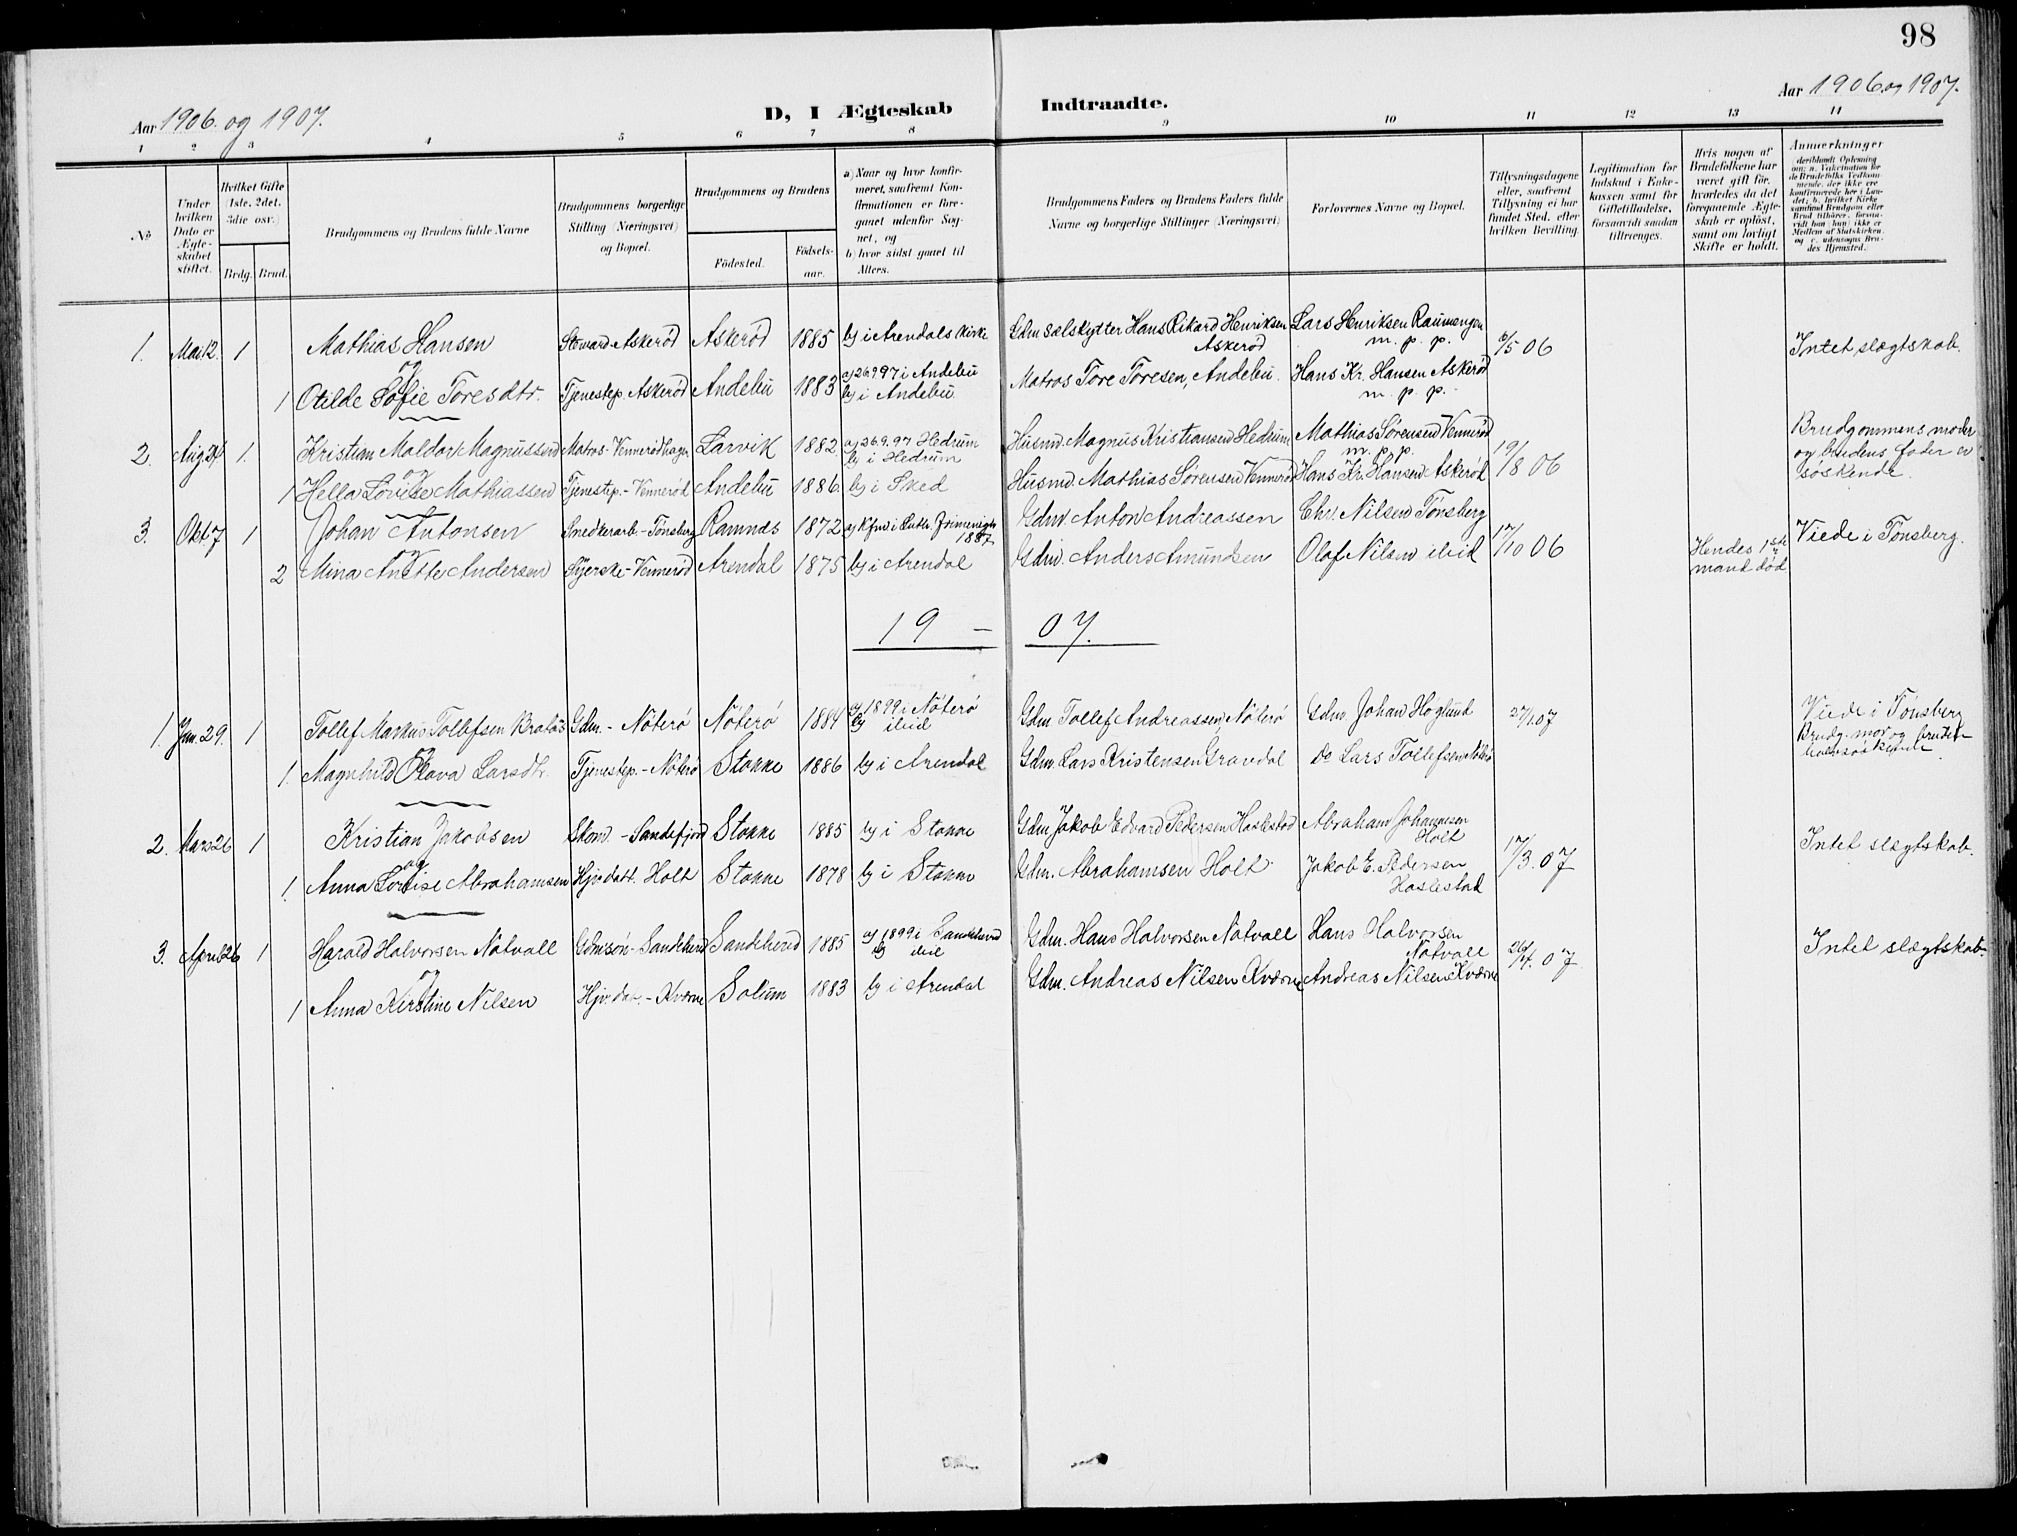 98
Aar 1906. og 1907.
D, I Ægteskab Indtraadte.
Aar 1906. og 1907.
1 2 3 4 5 6 7 8 9 10 11 12 13 14
No
Under hvilken Dato er Ægteskabet stiftet.
Hvilket Gifte (1ste, 2det, 3die osv.)
Brdg. Brud.
Brudgommens og Brudens fulde Navne
Brudgommens borgerlige Stilling (Næringsvei) og Bopæl.
Brudgommens og Brudens
Födested.
Födselsaar.
a) Naar og hvor konfirmeret, saafremt Konfirmationen er foregaaet udenfor Sognet, og
b) hvor sidst gaaet til Alters.
Brudgommens Faders og Brudens Faders fulde Navne og borgerlige Stillinger (Næringsvei)
Forlovernes Navne og Bopæl.
Tillysningsdagene eller, saafremt Tillysning ei har fundet Sted, efter hvilken Bevilling.
Legitimation for Indskud i Enkekassen samt for Giftetilladelse, forsaavidt saadan tiltrænges.
Hvis nogen af Brudefolkene har været gift för, hvorledes da det foregaaende Ægteskab er oplöst, samt om lovligt Skifte er holdt.
Anmærkninger
1. Mai 12. 1 Mathias Hansen Steward Askerød Askerød 1885 b) i Arendals kirke Gdm sælskytter Hans Rikard Henriksen Askerød Lars Henriksen Raumengen m. p. p. 6/5 06 Intet slægtskab.
og
1 Otilde Sofie Toresdtr. Tjenestep. Askerød Andebu 1883 a) 26 9 97 i Andebu b) i Andebu Matros Tore Toresen, Andebu. Hans Kr. Hansen Askerød m. p. p.
2. Aug 1 Kristian Maldor Magnussen Matros - Vennerødhagen Larvik 1882 a) 26.9.97 Hedrum b) i Hedrum Husmd. Magnus Kristiansen Hedrum Mathias Sørensen Vennerød m. p. p. 19/8 06 Brudgommens moder og brudens fader er søskende.
og
1 Hella Lovise Mathiassen Tjenestep. - Vennerød Andebu 1886. b) i Sked Husmd. Mathias Sørensen Vennerød Hans Kr. Hansen Askerød
3. Okt. 7 1 Johan Antonsen Smedkerarb - Tønsberg Ramnæs 1872 a) Kfm i Luth. frimenigh 1887 Gdm. Anton Andreassen Chr. Nilsen Tønsberg 17/10 06 Viede i Tønsberg.
og
2 Mina Anette Andersen Syerske - Vennerød Arendal 1875 b) i Arendal Gdm. Anders Amundsen Olaf Nilsen ibid Hendes 1ste mand død
19 - 07.
1. Jan. 29. 1 Tollef Markus Tollefsen Bratås Gdm. - Nøterø Nøterø 1884 a) 1899 i Nøterø b) ibid Gdm. Tollef Andreassen, Nøterø Gdm. Johan Høglund 27/1 07 Viede i Tønsberg Brudg. mor og bruden halvsøskende
og
1. Magnhild Olava Larsdtr. Tjenestep. - Nøterø Stokke 1886 b) i Arendal Gdm. Lars Kristensen Gravdal Do Lars Tollefsen Nøterø
2. Mars 26 1 Kristian Jakobsen Skom. - Sandefjord Stokke 1885 b) i Stokke Gdm. Jakob Edvard Pedersen Haslestad Abraham Johannesen Holt 17/3. 07 Intet slægtskab.
og
1. Anna Lovise Abrahamsen Hjv. datt. Holt Stokke 1878 b) i Stokke Gdm. Abrahamsen Holt Jakob E. Pedersen Haslestad
3. April 26 1 Harald Halvorsen Nøtvall Gdmsøn - Sandeherred Sandeherred 1885 a) 1899 i Sandeherred b) ibid Gdm. Hans Halvorsen Nøtvall Hans Halvorsen Nøtvall 26/4. 07 Intet slægtskab.
og
1 Anna Kirstine Nilsen Hjv. dat. - Kværne Solum 1883 b) i Arendal Gdm. Andreas Nilsen Kværne Andreas Nilsen Kværne